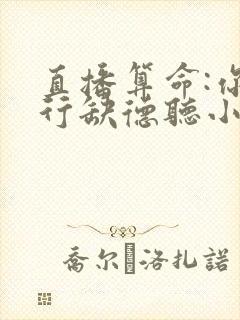 直播算命:你
行缺德聽小
喬尔·洛扎諾